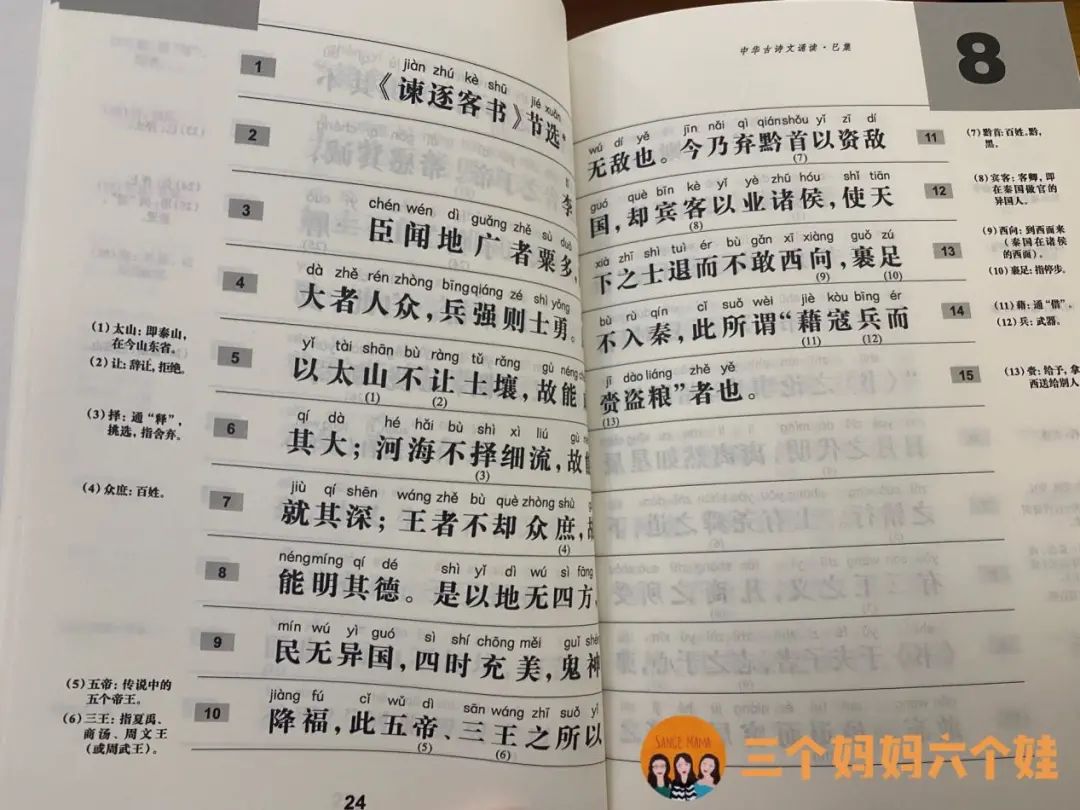 1
jiàn zhú kè shū jié xuǎn
《谏逐客书》节选*
2
李
3
chén wén dì guǎng zhě sù duō
臣闻地广者粟多,
4
dà zhě rén zhòng bīng qiáng zé shì yǒng
大者人众,兵强则士勇。
5
yǐ tài shān bù ràng tǔ rǎng gù néng
以太山不让土壤,故能
(1) (2)
6
qí dà hé hǎi bù shì xì liú gù
其大;河海不择细流,故
(3)
7
jiù qí shēn wáng zhě bù què zhòng shù
就其深;王者不却众庶,
(4)
8
néng míng qí dé shì yǐ dì wú sì fāng
能明其德。是以地无四方、
9
mín wú yì guó sì shí chōng měi guǐ shén
民无异国,四时充美,鬼神
10
jiàng fú cǐ wǔ dì sān wáng zhī suǒ yǐ
降福,此五帝、三王之所以
(5) (6)
(1)太山:即泰山,
在今山东省。
(2)让:辞让,拒绝。
(3)择:通“释”,
挑选,指舍弃。
(4)众庶:百姓。
(5)五帝:传说中的
五个帝王。
(6)三王:指夏禹、
商汤、周文王
(或周武王)。
24
中华古诗文诵读·巳集
8
wú dí yě jīn nǎi qì qián shǒu yǐ zī dí
无敌也。今乃弃黔首以资敌
(7)
11
guó què bīn kè yǐ yè zhū hóu shǐ tiān
国,却宾客以业诸侯,使天
(8)
12
xià zhī shì tuì ér bù gǎn xī xiàng guǒ zú
下之士退而不敢西向,裹足
(9) (10)
13
bù rù qín cǐ suǒ wèi jiè kòu bīng ér
不入秦,此所谓“藉寇兵而
(11) (12)
14
jī dào liáng zhě yě
赍盗粮”者也。
(13)
15
(7)黔首:百姓。黔,
黑。
(8)宾客:客卿,即
在秦国做官的
异国人。
(9)西向:到西面来
(秦国在诸侯
的西面)。
(10)裹足:指停步。
(11)藉:通“借”。
(12)兵:武器。
(13)赍:给予,拿
西送给别人
SANGE MAMA
三个妈妈六个娃